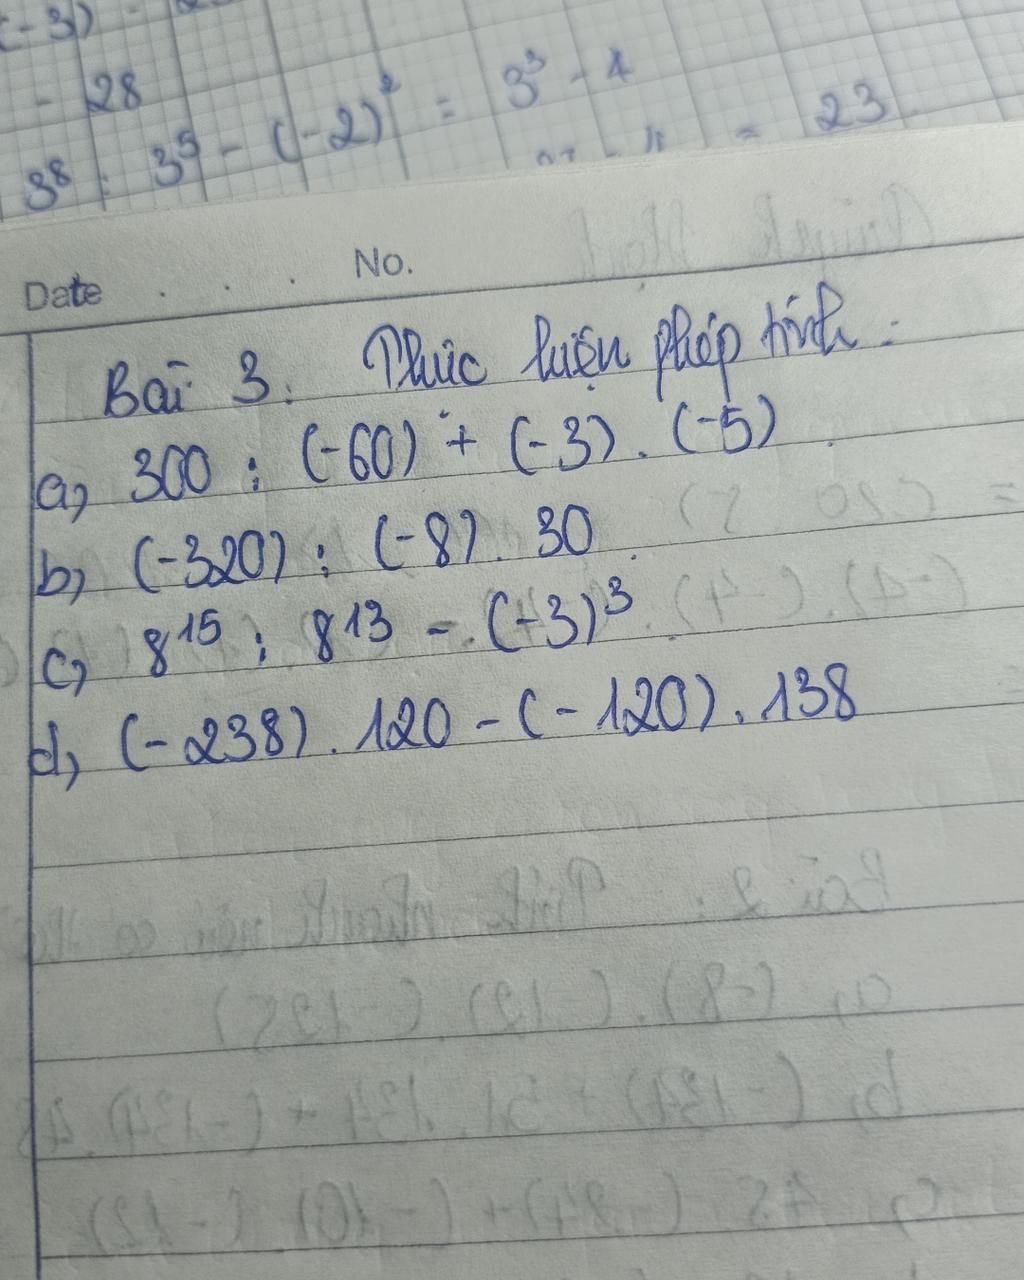 (-3)
- 28
3⁸ : 3⁵ - (-2)² = 3³ - 4
= 23
Date . . . No.
Bài 3. Thực hiện phép tính :
a) 300 : (-60) + (-3) . (-5)
b) (-320) : (-8) . 30
c) 8¹⁵ : 8¹³ - (-3)³
d) (-238) . 120 - (-120) . 138